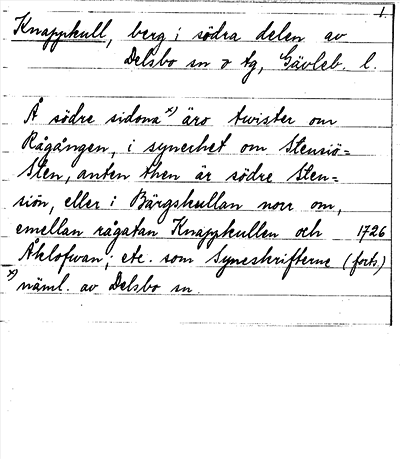 1.
Knappkull, berg i södra delen av
Delsbo sn o tg, Gävleb. l.
Å södre sidona x) äro twister om
Rågången, i synerhet om Stensiö=
Sten, anten then är södre Sten=
siön, eller i Bärgskullan norr om,
emellan rågatan Knappkullen och 1726
Åklofwan; etc. som Syneskrifterne (forts)
x) näml. av Delsbo sn.